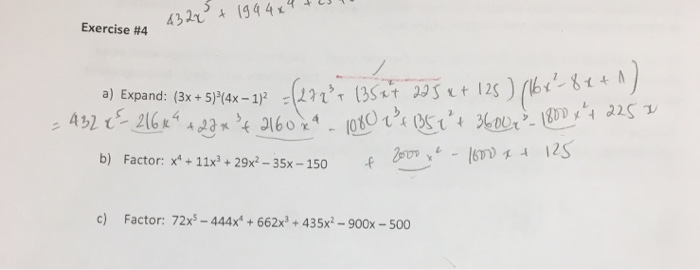 432x⁵ + 1944x⁴
Exercise #4
a) Expand: (3x + 5)³(4x – 1)² = (27x³ + 135x² + 225x + 125) (16x² - 8x + 1)
= 432x⁵ - 216x⁴ + 27x³ + 2160x⁴ - 1080x³ + 135x² + 3600x³ - 1800x² + 225x
b) Factor: x⁴ + 11x³ + 29x² – 35x – 150
+ 2000x² - 1000x + 125
c) Factor: 72x⁵ – 444x⁴ + 662x³ + 435x² – 900x – 500